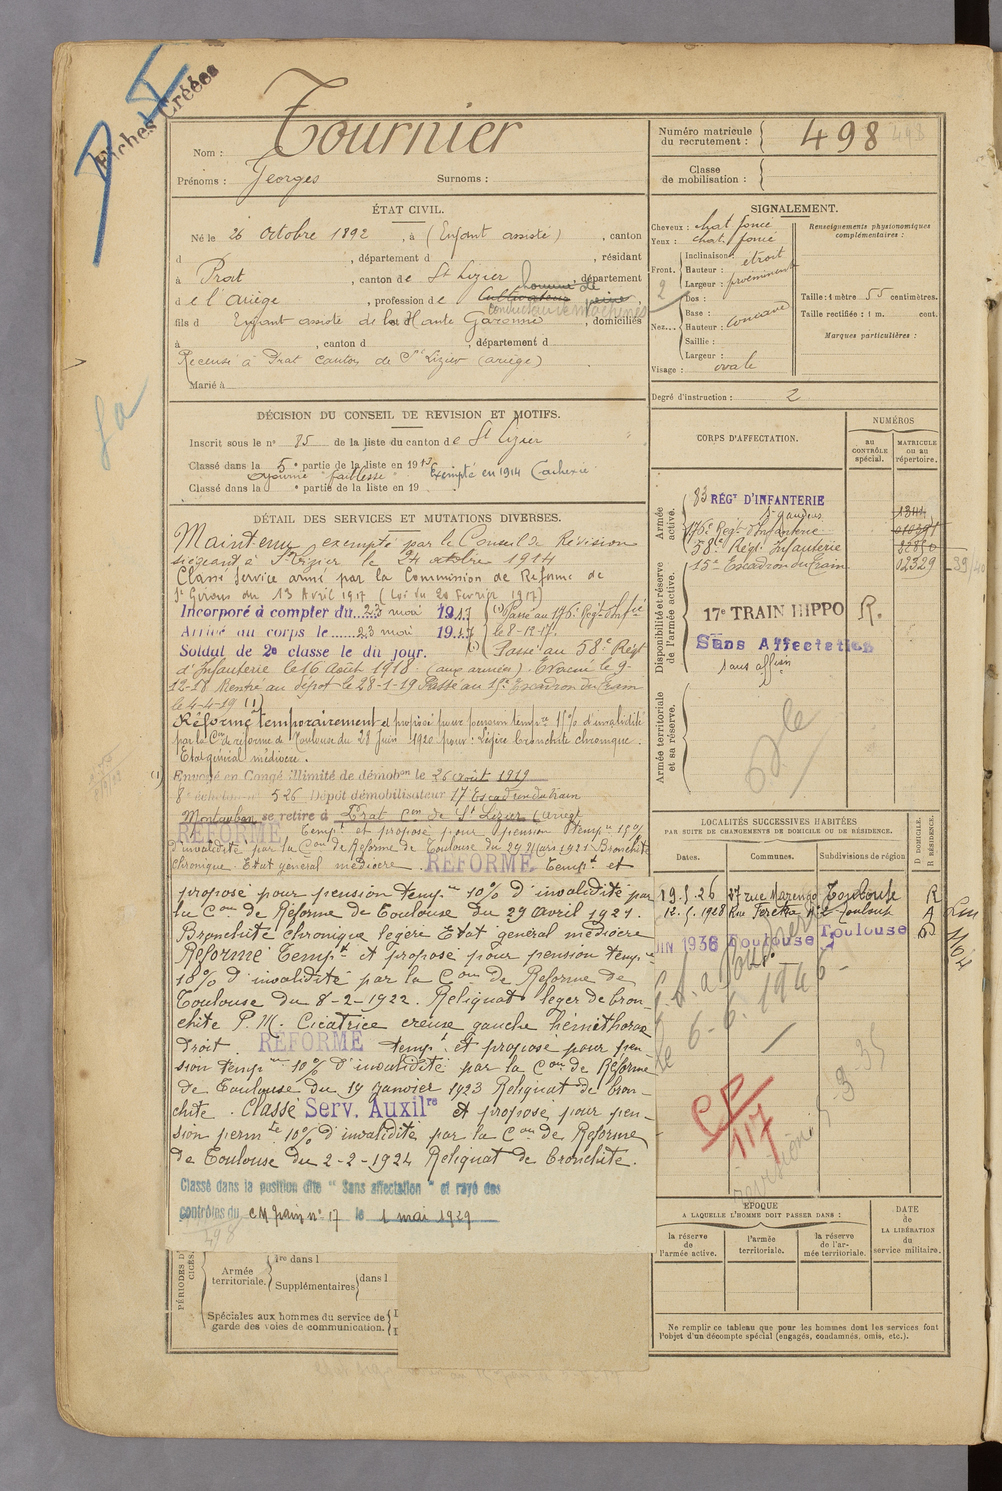 Fiches Créées
Nom : Tournier
Prénoms : Georges Surnoms :
Numéro matricule du recrutement : 498
Classe de mobilisation :
ÉTAT CIVIL.
Né le 26 Octobre 1892, à (Enfant assisté), canton
d , département d , résidant
à Prat, canton de St Lizier, département
de l'ariège, profession de Cultivateur homme de peine,
conducteur de machines
fils d Enfant assisté de la Haute Garonne, domiciliés
à , canton d , département d
Recensé à Prat canton de St Lizier (ariège)
Marié à
SIGNALEMENT.
Cheveux : chat. foncé
Yeux : chat. foncé
Front. Inclinaison : étroit
Hauteur : proéminent
Largeur :
Nez... Dos :
Base :
Hauteur : concave
Saillie :
Largeur :
Visage : ovale
Renseignements physionomiques complémentaires :
Taille : 1 mètre 55 centimètres.
Taille rectifiée : 1 m. cent.
Marques particulières :
Degré d'instruction : 2
DÉCISION DU CONSEIL DE REVISION ET MOTIFS.
Inscrit sous le n° 85 de la liste du canton de St Lizier
Classé dans la 5e partie de la liste en 1913
ajourné faiblesse Exempté en 1914 Cachexie
Classé dans la e partie de la liste en 19
DÉTAIL DES SERVICES ET MUTATIONS DIVERSES.
Maintenu exempté par le Conseil de Révision
siégeant à St Lizier le 24 octobre 1914
Classé Service armé par la Commission de Réforme de
St Girons du 13 Avril 1917 (Loi du 20 Février 1917)
Incorporé à compter du 23 mai 1917 (1) Passé au 176e Regt d'Infie
Arrivé au corps le 23 mai 1917 le 8-12-17.
Soldat de 2e classe le dit jour. Passé au 58e Régt
d'Infanterie le 16 Août 1918 (aux armées). Evacué le 9-
12-18 Rentré au dépôt le 28-1-19 Passé au 15e Escadron du Train
le 4-4-19 (1)
Réformé temporairement et proposé pour pension tempre 15% d'invalidité
par la Con de réforme de Toulouse du 28 Juin 1920 pour : légère bronchite chronique.
Etat général médiocre.
(1) Envoyé en Congé illimité de démobon le 26 août 1919
8e échelon n° 526 Dépôt démobilisateur 17 Escadron du train
Montauban se retire à Prat Con de St Lizier (Ariège
RÉFORMÉ Tempt et proposé pour pension tempre 15%
d'invalidité par la Con de Réforme de Toulouse du 29 Mars 1921 Bronchite
chronique Etat général médiocre. RÉFORMÉ Tempt et
proposé pour pension tempre 10% d'invalidité par
la Con de Réforme de Toulouse du 29 avril 1921.
Bronchite chronique légère Etat général médiocre
Réformé Tempt et proposé pour pension tempre
10% d'invalidité par la Con de Réforme de
Toulouse du 8-2-1922. Reliquat léger de bron-
chite P.M. Cicatrice creuse gauche hémithorax
droit. RÉFORMÉ tempt et proposé pour pen-
sion tempre 10% d'invalidité par la Con de Réforme
de Toulouse du 19 Janvier 1923 Reliquat de bron-
chite. Classé Serv. Auxilre et proposé pour pen-
sion perm te 10% d'invalidité par la Con de Réforme
de Toulouse du 2-2-1924 Reliquat de bronchite.
Classé dans la position dite "Sans affectation" et rayé des
contrôles du CM train n° 17 le 1 mai 1929
498
CORPS D'AFFECTATION.
NUMÉROS
AU CONTRÔLE spécial.
MATRICULE ou au répertoire.
Armée active.
83 RÉGt D'INFANTERIE
St gaudens
176e Regt d'Infanterie
58e Régt Infanterie
15e Escadron du Train 02329
Disponibilité et réserve de l'armée active.
17e TRAIN HIPPO R.
Sans Affectation
sans affon
Armée territoriale et sa réserve.
LOCALITÉS SUCCESSIVES HABITÉES
PAR SUITE DE CHANGEMENTS DE DOMICILE OU DE RÉSIDENCE.
Dates. Communes. Subdivisions de région D DOMICILE. R RÉSIDENCE.
19.5.26 27 rue Marengo Toulouse R
12.1.1928 Rue Toulouse A
JUIN 1936 Toulouse Toulouse D
le 6-6-1946
CP
117
ÉPOQUE
A LAQUELLE L'HOMME DOIT PASSER DANS :
la réserve de l'armée active.
l'armée territoriale.
la réserve de l'armée territoriale.
DATE de LA LIBÉRATION du service militaire.
Ne remplir ce tableau que pour les hommes dont les services font
l'objet d'un décompte spécial (engagés, condamnés, omis, etc.).
Armée territoriale. 1re dans l
Supplémentaires dans l
Spéciales aux hommes du service de
garde des voies de communication.